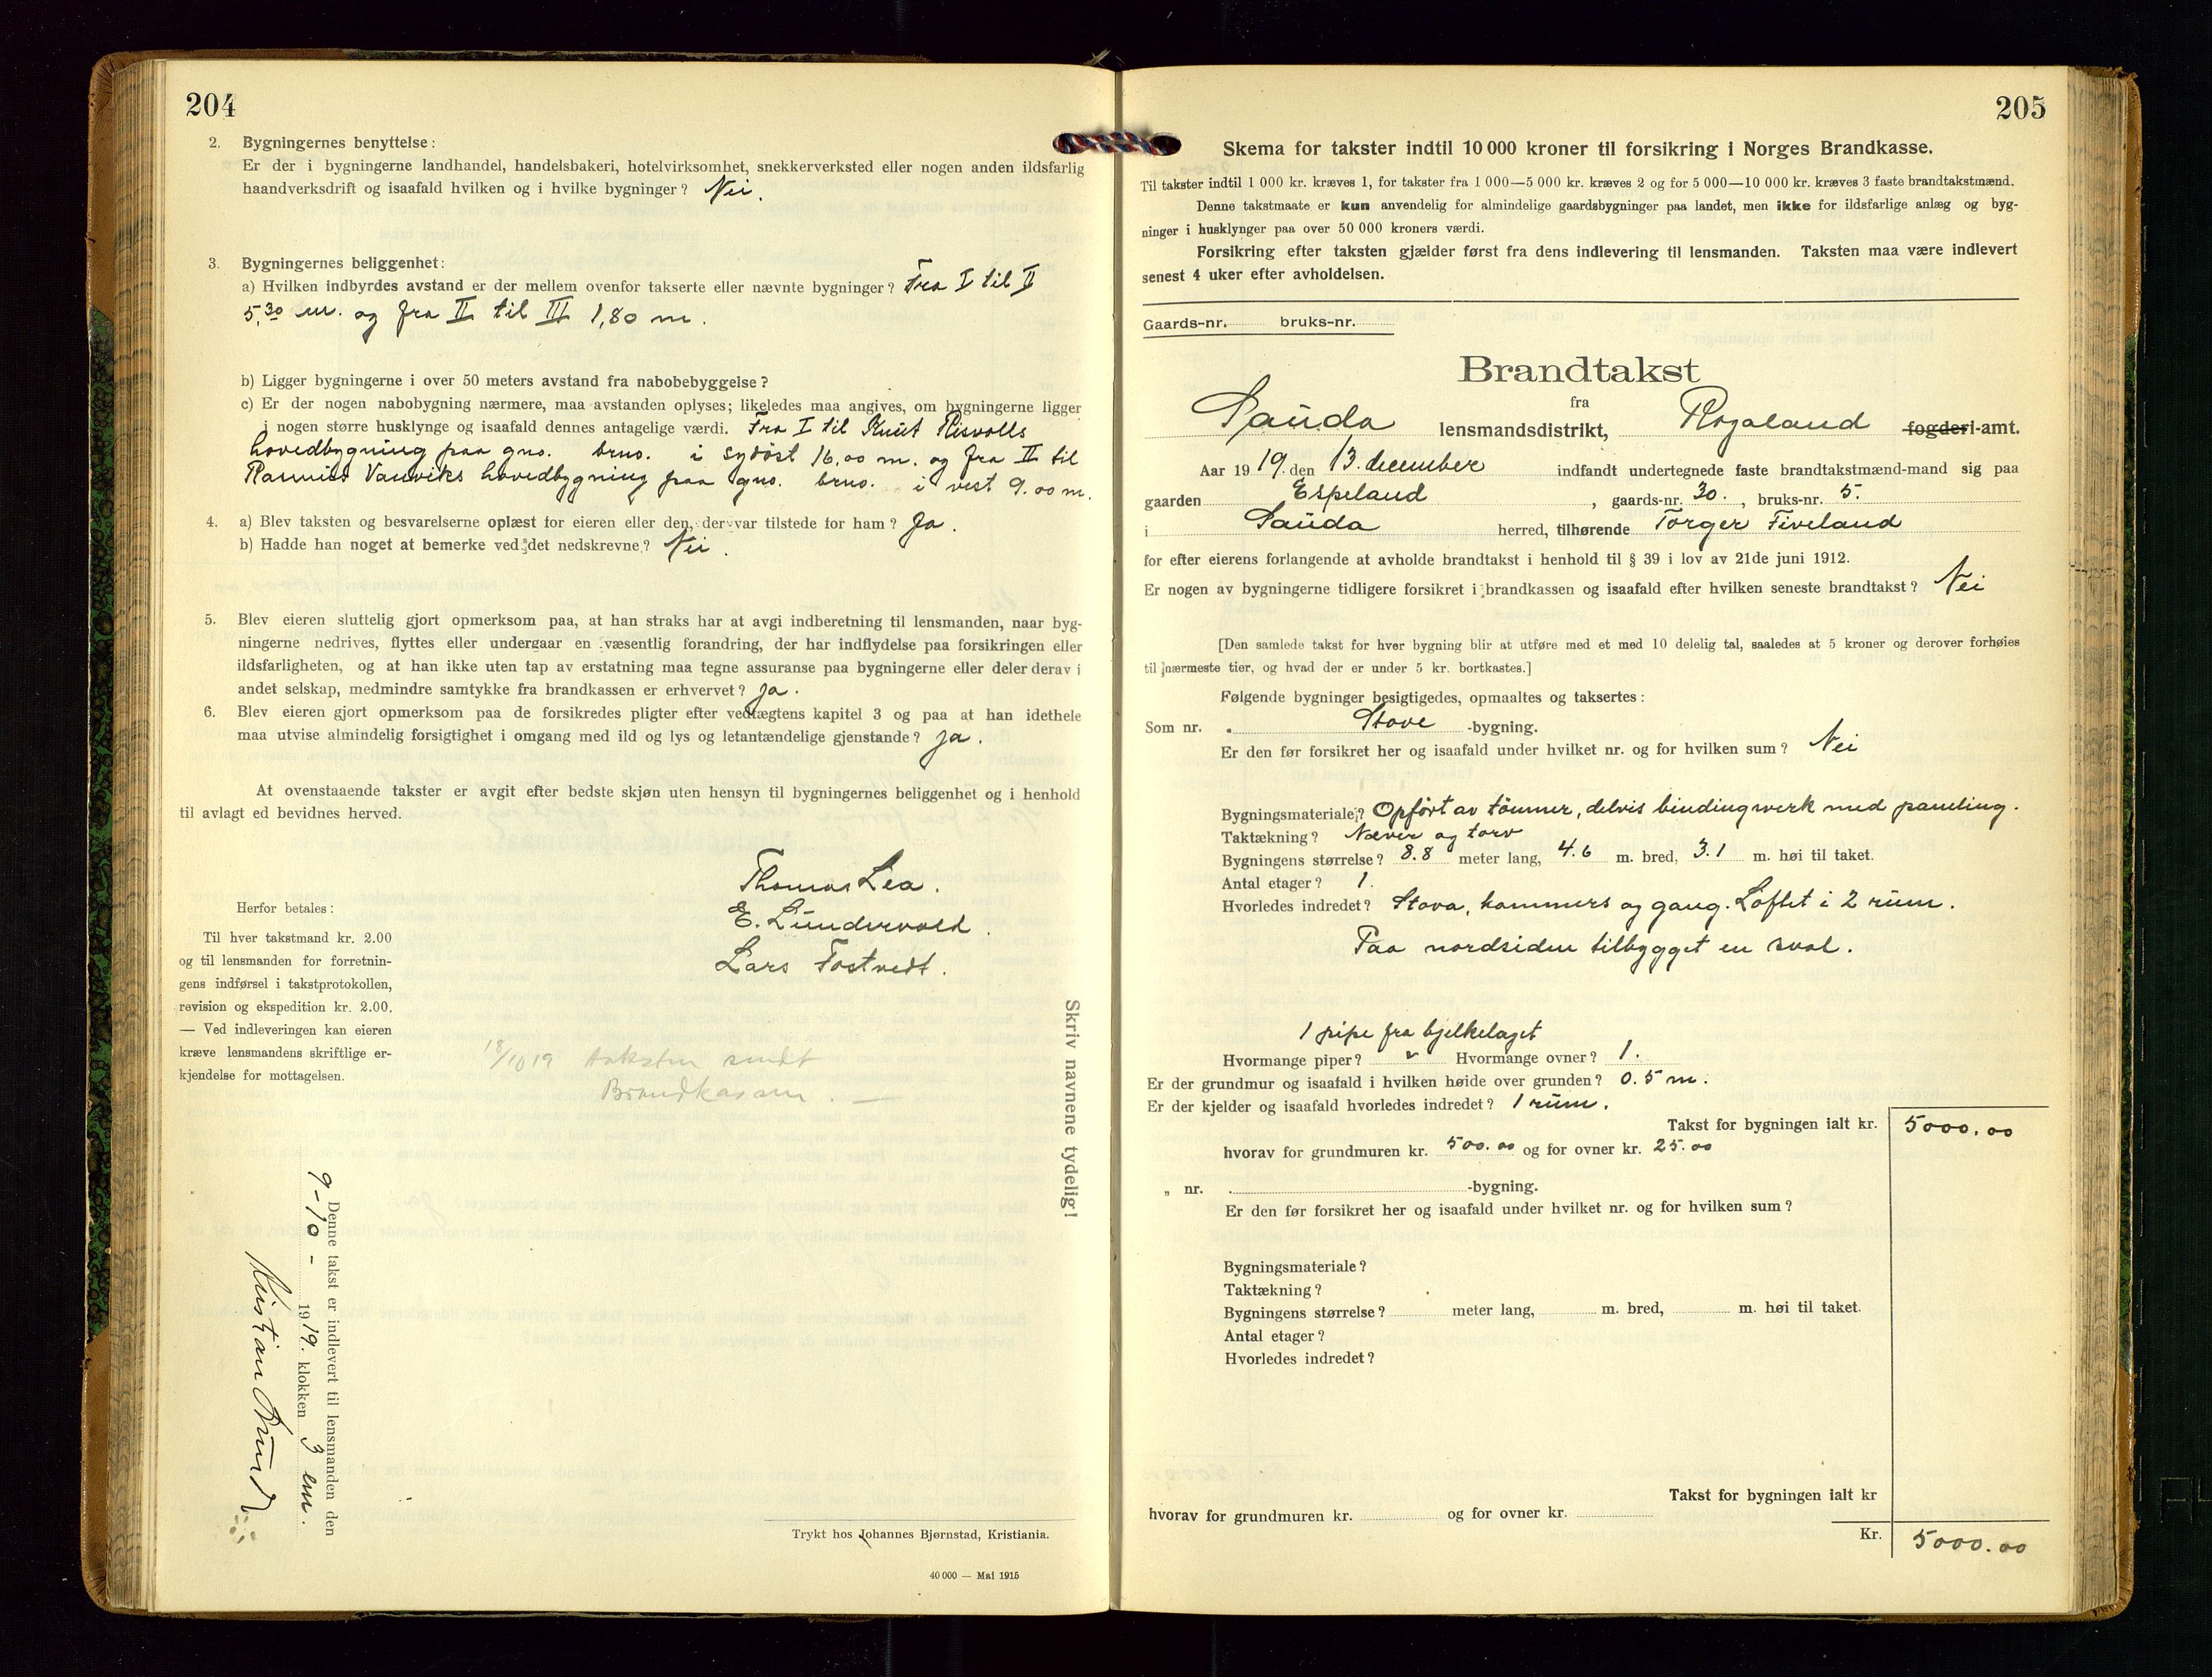 204
2. Bygningernes benyttelse:
Er der i bygningerne landhandel, handelsbakeri, hotelvirksomhet, snekkerverksted eller nogen anden ildsfarlig
haandverksdrift og isaafald hvilken og i hvilke bygninger? Nei.
3. Bygningernes beliggenhet:
a) Hvilken indbyrdes avstand er der mellem ovenfor takserte eller nævnte bygninger? Fra I til II
5,30 m. og fra II til III 1,80 m.
b) Ligger bygningerne i over 50 meters avstand fra nabobebyggelse?
c) Er der nogen nabobygning nærmere, maa avstanden oplyses; likeledes maa angives, om bygningerne ligger
i nogen større husklynge og isaafald dennes antagelige værdi. Fra I til Knut Risvolls
hovedbygning paa gno. brno. i sydöst 16,00 m. og fra II til
Vanviks hovedbygning paa gno. brno. i vest 9.00 m.
4. a) Blev taksten og besvarelserne oplæst for eieren eller den, der var tilstede for ham? Ja.
b) Hadde han noget at bemerke ved det nedskrevne? Nei.
5. Blev eieren sluttelig gjort opmerksom paa, at han straks har at avgi indberetning til lensmanden, naar byg-
ningerne nedrives, flyttes eller undergaar en væsentlig forandring, der har indflydelse paa forsikringen eller
ildsfarligheten, og at han ikke uten tap av erstatning maa tegne assuranse paa bygningerne eller deler derav i
andet selskap, medmindre samtykke fra brandkassen er erhvervet? Ja.
6. Blev eieren gjort opmerksom paa de forsikredes pligter efter vedtægtens kapitel 3 og paa at han idethele
maa utvise almindelig forsigtighet i omgang med ild og lys og letantændelige gjenstande? Ja.
At ovenstaaende takster er avgit efter bedste skjøn uten hensyn til bygningernes beliggenhet og i henhold
til avlagt ed bevidnes herved.
Thomas Lea.
E. Lundervold.
Lars Tostvedt.
Herfor betales:
Til hver takstmand kr. 2.00
og til lensmanden for forretnin-
gens indførsel i takstprotokollen,
revision og ekspedition kr. 2.00.
— Ved indleveringen kan eieren
kræve lensmandens skriftlige er-
kjendelse for mottagelsen.
18/10 19 taksten sendt
Brandkassen. —
Skriv navnene tydelig!
Denne takst er indlevert til lensmanden den
9-10- 1919. klokken 3 em.
Kristian
Trykt hos Johannes Bjørnstad, Kristiania.
40 000 — Mai 1915
205
Skema for takster indtil 10 000 kroner til forsikring i Norges Brandkasse.
Til takster indtil 1 000 kr. kræves 1, for takster fra 1 000—5 000 kr. kræves 2 og for 5 000—10 000 kr. kræves 3 faste brandtakstmænd.
Denne takstmaate er kun anvendelig for almindelige gaardsbygninger paa landet, men ikke for ildsfarlige anlæg og byg-
ninger i husklynger paa over 50 000 kroners værdi.
Forsikring efter taksten gjælder først fra dens indlevering til lensmanden. Taksten maa være indlevert
senest 4 uker efter avholdelsen.
Gaards-nr. bruks-nr.
Brandtakst
fra
Sauda lensmandsdistrikt, Rogaland fogderi-amt.
Aar 1919. den 13. december indfandt undertegnede faste brandtakstmænd-mand sig paa
gaarden Espeland, gaards-nr. 30., bruks-nr. 5.
i Sauda herred, tilhørende Torger Fiveland
for efter eierens forlangende at avholde brandtakst i henhold til § 39 i lov av 21de juni 1912.
Er nogen av bygningerne tidligere forsikret i brandkassen og isaafald efter hvilken seneste brandtakst? Nei
[Den samlede takst for hver bygning blir at utføre med et med 10 delelig tal, saaledes at 5 kroner og derover forhøies
til nærmeste tier, og hvad der er under 5 kr. bortkastes.]
Følgende bygninger besigtigedes, opmaaltes og taksertes:
Som nr. . Stove -bygning.
Er den før forsikret her og isaafald under hvilket nr. og for hvilken sum? Nei
Bygningsmateriale? Opfört av tömmer, delvis bindingwerk med paneling.
Taktækning? Næver og torv
Bygningens størrelse? 8.8 meter lang, 4.6 m. bred, 3.1 m. høi til taket.
Antal etager? 1.
Hvorledes indredet? Stova, kammers og gang. Loftet i 2 rum.
Paa nordsiden tilbygget en sval.
1 pipe fra bjelkelaget
Hvormange piper? " Hvormange ovner? 1.
Er der grundmur og isaafald i hvilken høide over grunden? 0.5 m.
Er der kjelder og isaafald hvorledes indredet? 1 rum.
Takst for bygningen ialt kr. 5000.00
hvorav for grundmuren kr. 500.00 og for ovner kr. 25.00
„ nr. . -bygning.
Er den før forsikret her og isaafald under hvilket nr. og for hvilken sum?
Bygningsmateriale?
Taktækning?
Bygningens størrelse? meter lang, m. bred, m. høi til taket.
Antal etager?
Hvorledes indredet?
Takst for bygningen ialt kr
hvorav for grundmuren kr. og for ovner kr.
Kr. 5000.00